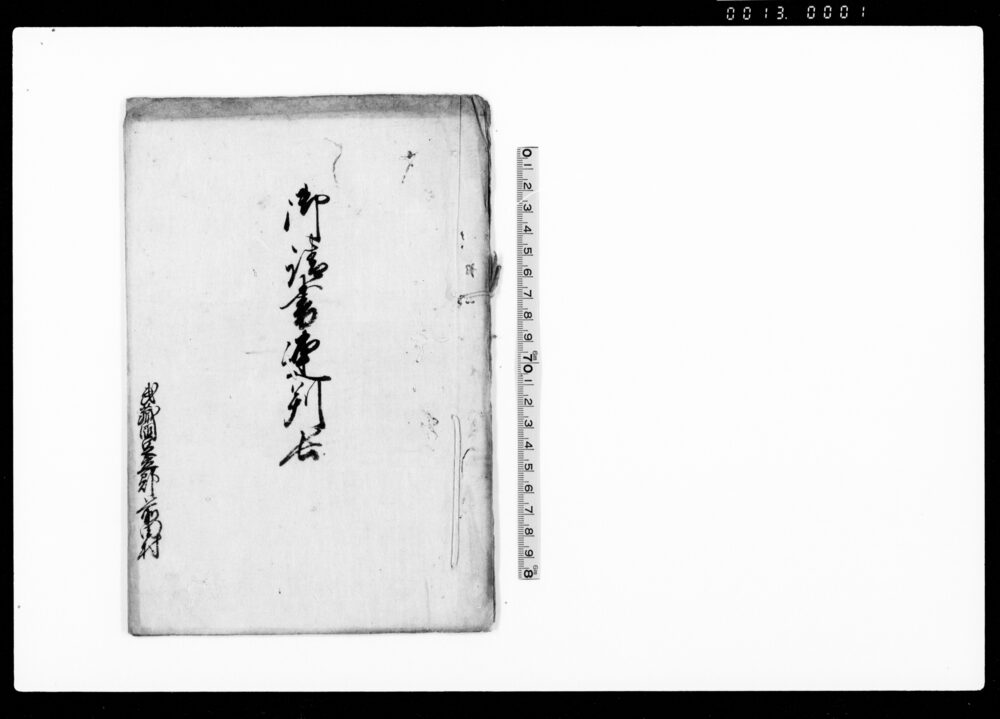 0013. 0001
御請書連判長
武蔵国足立郡前川村
0 1 2 3 4 5 6 7 8 9 10 1 2 3 4 5 6 7 8 9 8